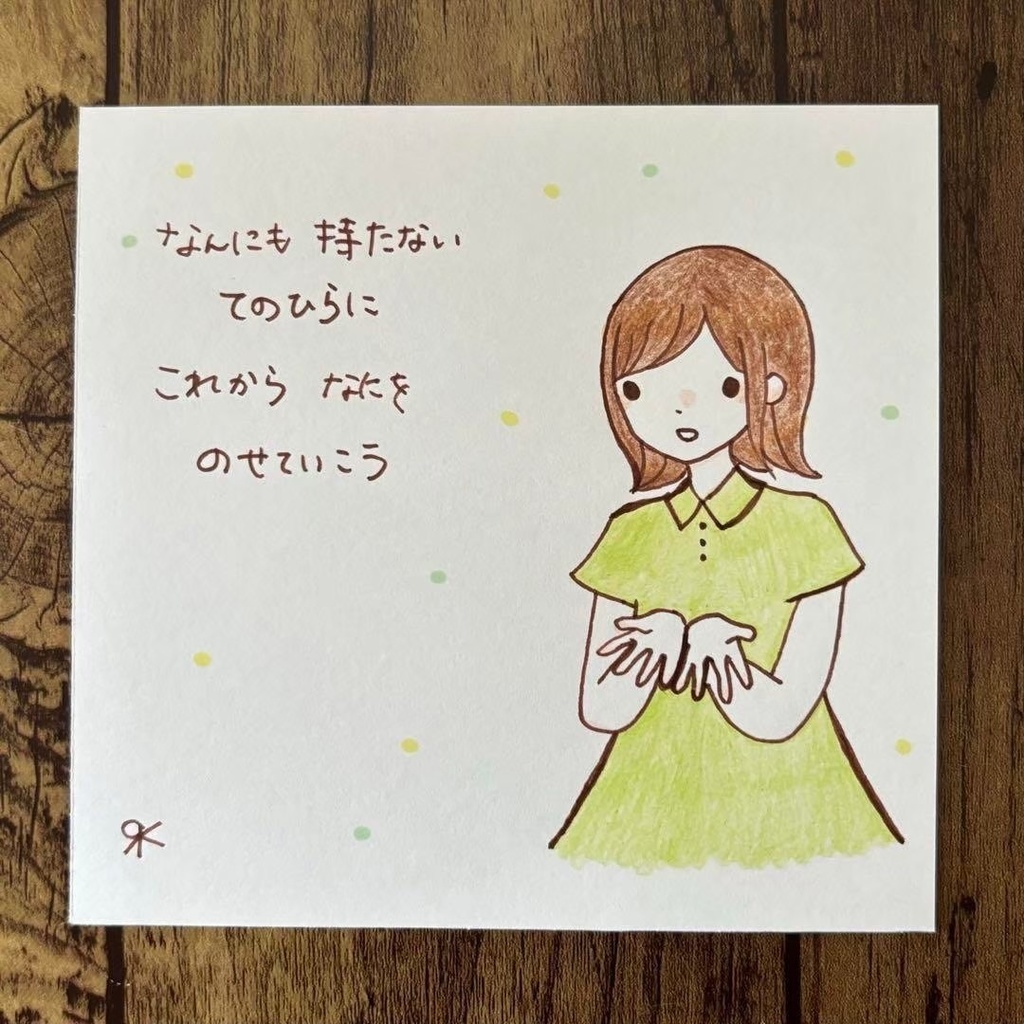 なんにも 持たない
てのひらに
これから なにを
のせていこう